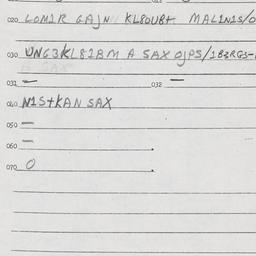 020 LOM1R GAJN KL80UR+ MAL1N1S/0
030 UNG3KL81BM A SAX OJPS/1B3RGS-
031 — 032 —
040 N1S+KAN SAX
050 —
060 —
070 0